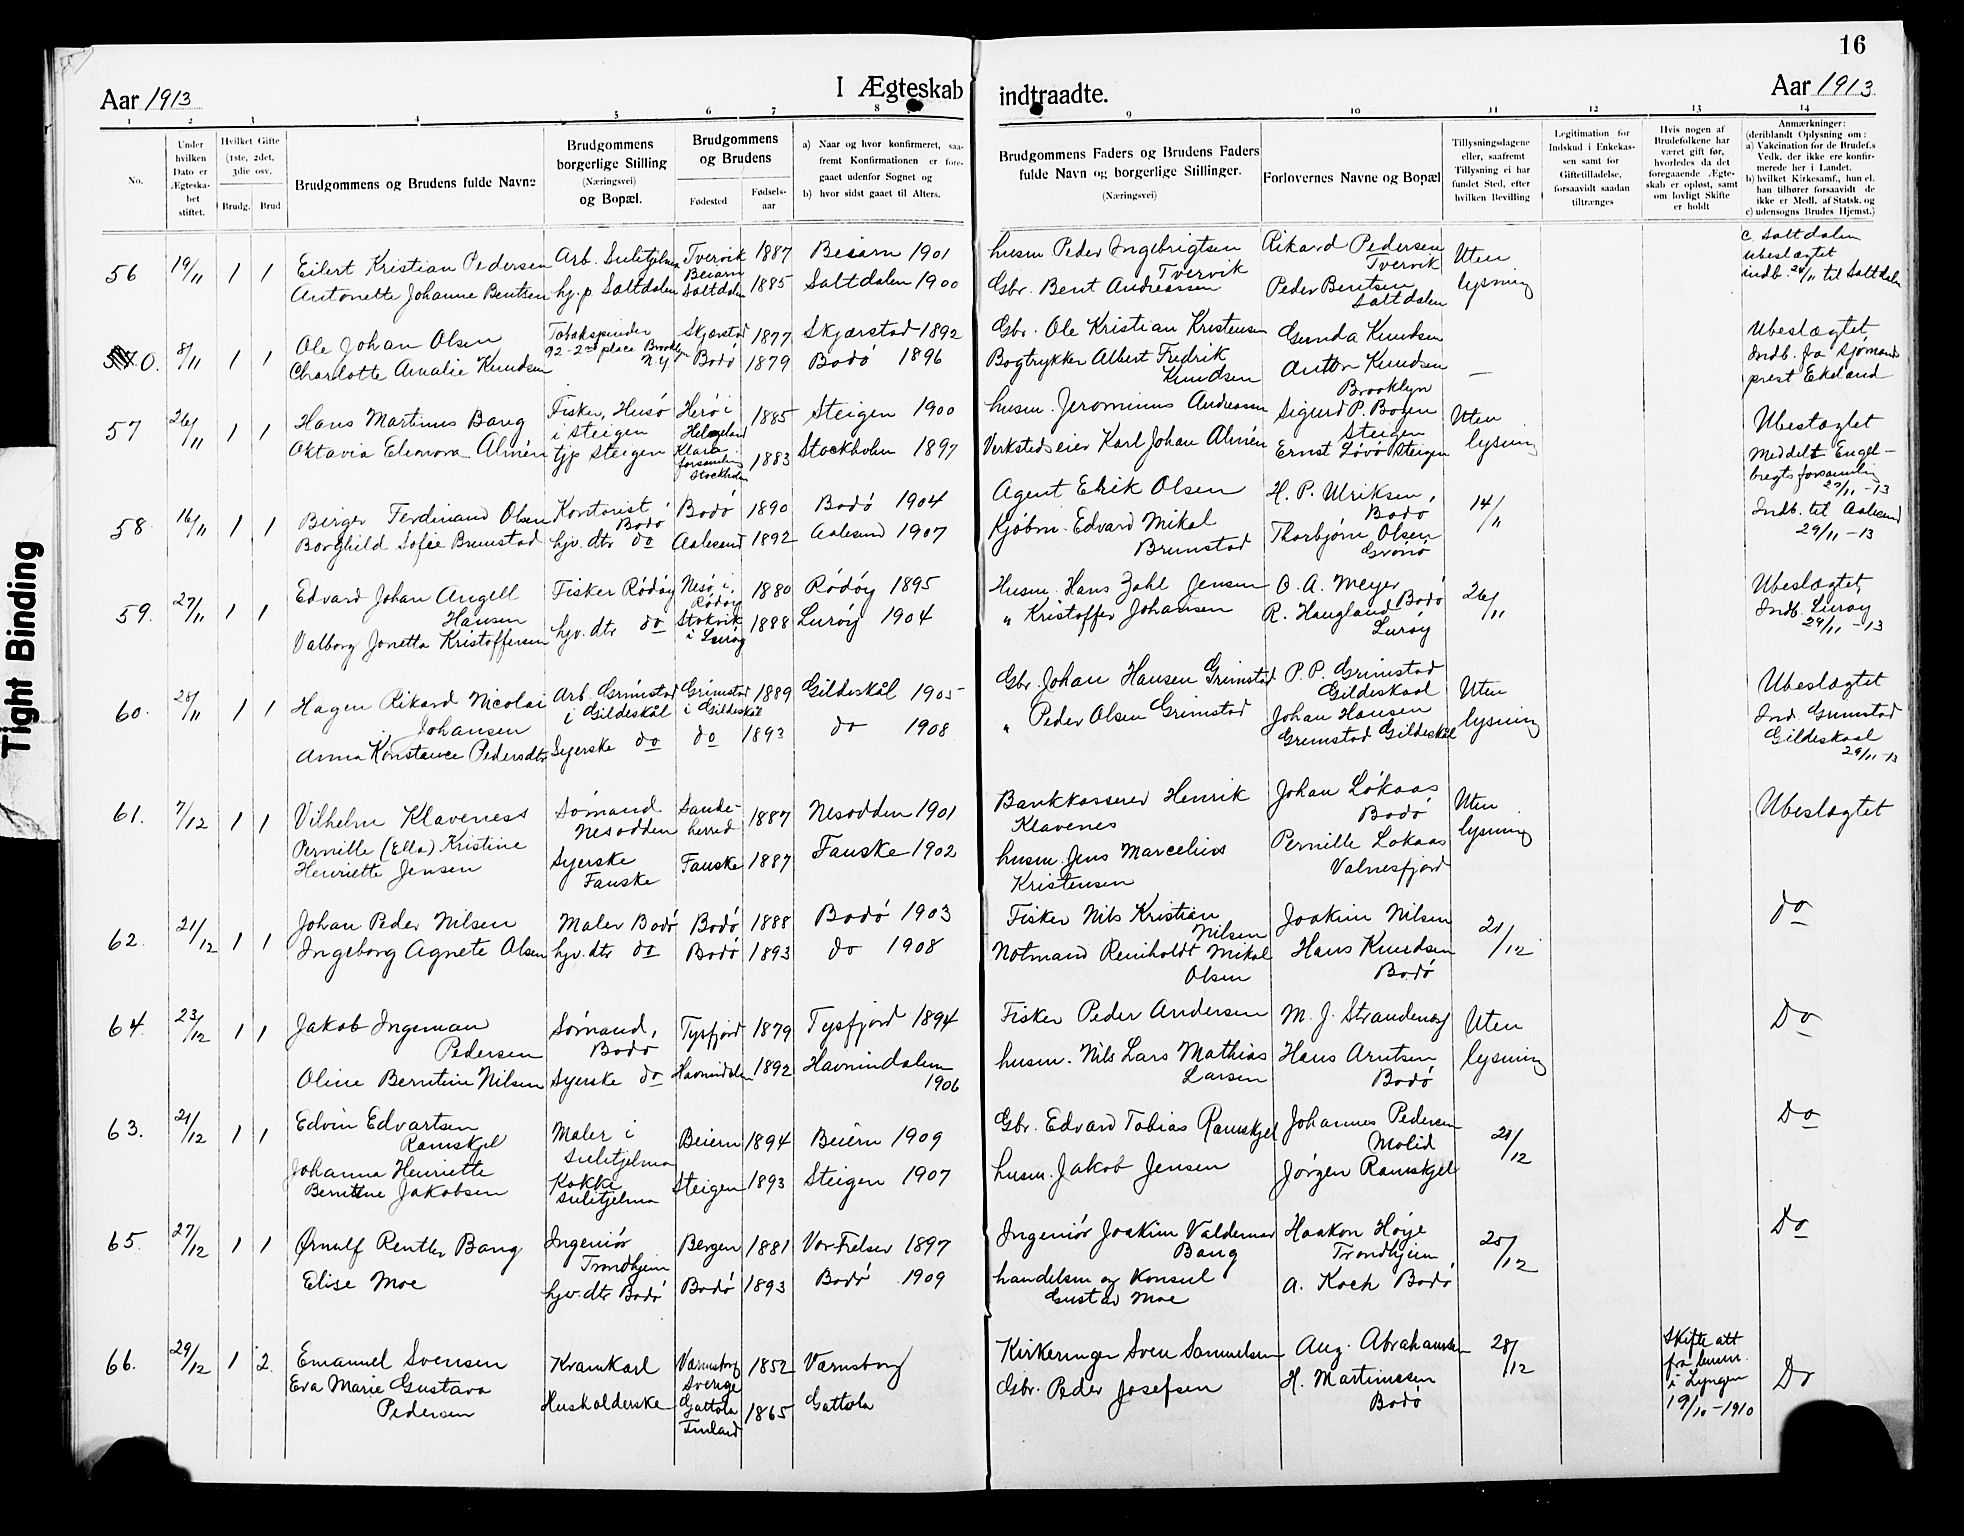 16
Aar 1913
I Ægteskab
indtraadte.
Aar 1913
1 2 3 4 5 6 7 8 9 10 11 12 13 14
No.
Under hvilken Dato er Ægteskabet stiftet.
Hvilket Gifte (1ste, 2det, 3die osv.
Brudg. Brud
Brudgommens og Brudens fulde Navne
Brudgommens borgerlige Stilling (Næringsvei) og Bopæl.
Brudgommens og Brudens
Fødested
Fødselsaar
a) Naar og hvor konfirmeret, saafremt Konfirmationen er foregaaet udenfor Sognet og
b) hvor sidst gaaet til Alters.
Brudgommens Faders og Brudens Faders fulde Navn og borgerlige Stillinger.
(Næringsvei)
Forlovernes Navne og Bopæl
Tillysningsdagene eller, saafremt Tillysning ei har fundet Sted, efter hvilken Bevilling
Legitimation for Indskud i Enkekassen samt for Giftetilladelse, forsaavidt saadan tiltrænges
Hvis nogen af Brudefolkene har været gift før, hvorledes da det foregaaende Ægteskab er opløst, samt om lovligt Skifte er holdt
Anmærkninger:
(deriblandt Oplysning om:
a) Vakcination for de Brudef.s Vedk. der ikke ere konfirmerede her i Landet.
b) hvilket Kirkesamf., hun el. han tilhører forsaavidt de ikke er Medl. af Statsk. og
c) udensogns Brudes Hjemst.)
56 19/11 1 1 Eilert Kristian Pedersen Arb. Sulitjelma Tvervik Beiarn 1887 Beiarn 1901 husm Peder Ingebrigtsen Tvervik Rikard Pedersen Tvervik Uten lysning c. Saltdalen ubeslægtet
Antonette Johanne Bentsen hj. p. Saltdalen Saltdalen 1885 Saltdalen 1900 Gbr. Bent Andreassen Peder Bentsen Saltdalen indb. 24/11 til Saltdalen
0. 8/11 1 1 Ole Johan Olsen Tobakspinder 92-2nd place Brooklyn N.Y. Skjærstad 1877 Skjærstad 1892 Gbr. Ole Kristian Kristensen Gunda Knudsen — Ubeslægtet
Charlotte Amalie Knudsen Bodö 1879 Bodö 1896 Bogtrykker Albert Fredrik Knudsen Anton Knudsen Brooklyn Indb. fra sjømandsprest Ekeland
57 26/11 1 1 Hans Martinus Bang Fisker, Husö i Steigen Heröi Helgeland 1885 Steigen 1900 husm. Jeronimus Andreassen Sigurd P. Bogen Steigen Uten lysning Ubeslægtet
Oktavia Eleonora Almén tjp Steigen Klara forsamling Stockholm 1883 Stockholm 1897 Verkstedseier Karl Johan Almén Ernst Lövö Steigen Meddelt Engelbregtsforsamling 27/11-13
58. 16/11 1 1 Birger Ferdinand Olsen Kontorist Bodö Bodö 1890 Bodö 1904 Agent Erik Olsen H. P. Ulriksen, Bodö 14/11 Indb. til Aalesund
Borghild Sofie Brunstad hjv. dtr do Aalesund 1892 Aalesund 1907 Kjöbm. Edvard Mikal Brunstad Thorbjörn Olsen 29/11-13
59. 27/11 1 1 Edvard Johan Angell Hansen Fisker Rödöy Nesö i Rödöy 1880 Rödöy 1895 Husm. Hans Zahl Jensen O. A. Meyer Bodö 26/11 Ubeslægtet,
Valborg Jonetta Kristoffersen hjv. dtr do Stokvik i Luröy 1888 Luröy 1904 " Kristoffer Johansen R. Haugland Luröy Indb. Luröy 29/11-13
60. 28/11 1 1 Hagen Rikard Nicolai Johansen Arb. Grimstad i Gildeskål Grimstad i Gildeskål 1889 Gildeskål 1905 Gbr. Johan Hansen Grimstad P. P. Grimstad Gildeskaal Uten lysning Ubeslægtet
Anna Konstance Pedersdtr Syerske do do 1893 do 1908 " Peder Olsen Grimstad Johan Hansen Grimstad Gildeskål Ind Grimstad Gildeskaal 29/11-13
61. 7/12 1 1 Vilhelm Klaveness Sömand Nesodden Sandeherred 1887 Nesodden 1901 Bankkasserer Henrik Klavenes Johan Lökaas Bodö Uten lysning Ubeslægtet
Pernille (Ella) Kristine Henriette Jensen Syerske Fauske Fauske 1887 Fauske 1902 husm. Jens Marcelius Kristensen Pernille Lökaas Valnesfjord
62. 21/12 1 1 Johan Peder Nilsen Maler Bodö Bodö 1888 Bodö 1903 Fisker Nils Kristian Nilsen Joakim Nilsen 21/12 do
Ingeborg Agnete Olsen hjv. dtr do Bodö 1893 do 1908 Notmand Reinholdt Mikal Olsen Hans Knudsen Bodö
64. 23/12 1 1 Jakob Ingeman Pedersen Sömand, Bodö Tysfjord 1879 Tysfjord 1894 Fisker Peder Andersen M. J. Uten lysning Do
Oline Berntine Nilsen Syerske do 1892 1906 husm. Nils Lars Mathias Larsen Hans Arntsen Bodö
63. 21/12 1 1 Edvin Edvartsen Ramskjel Maler i Sulitjelma Beiern 1894 Beiern 1909 Gbr. Edvard Tobias Ramskjel Johannes Pedersen Molid 21/12 Do
Johanna Henriette Berntine Jakobsen Kokke Sulitjelma Steigen 1893 Steigen 1907 husm. Jakob Jensen Jörgen Ramskjel
65. 27/12 1 1 Ørnulf Rentler Bang Ingeniör Trondhjem Bergen 1881 Vor Frelser 1897 Ingeniör Joakim Valdemar Bang Haakon Höye Trondhjem 25/12 Do
Elise Moe hjv. dtr Bodö Bodö 1893 Bodö 1909 handelsm og Konsul Gustav Moe A. Koch Bodö
66. 29/12 1 2. Emanuel Svensen Kramkarl Varnsborg Sverige 1852 Varnsborg Kirkeringer Sven Samuelsen Aug. Abrahamsen 28/12 Skifte att fra i Lyngen 19/10-1910 Do
Eva Marie Gustava Pedersen Husholderske Gattola Finland 1865 Gattola Gbr. Peder Josefsen H. Martinussen Bodö
Tight Binding